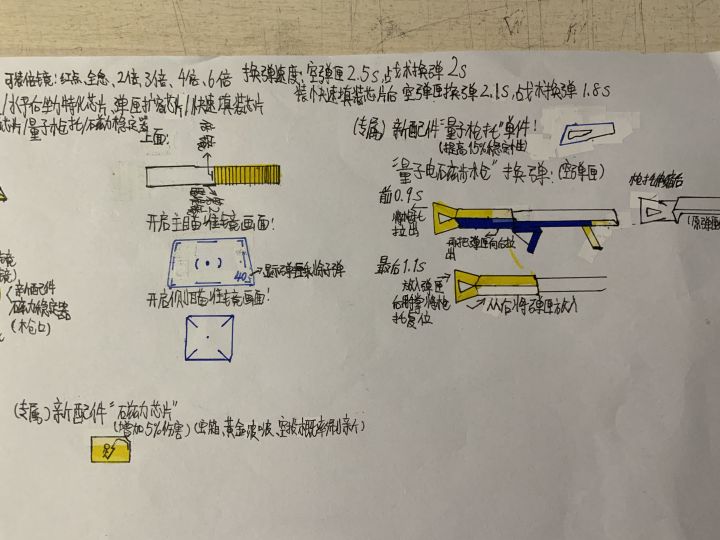 可装倍镜：红点、全息、2倍、3倍、4倍、6倍
换弹速度：空弹匣2.5s，战术换弹2s
装快速填装芯片后 空弹匣换弹2.1s，战术换弹1.8s
芯片、弹匣扩容芯片/快速填装芯片
芯片/量子枪托/磁力稳定器
上面：
(专属)新配件"量子枪托"单件！
(提高15%稳定性)
"量子电磁步枪"换弹：(空弹匣)
前0.9s
拉出
再把弹匣向右拉出
枪托伸缩后
(原弹匣
开启主瞄准镜画面！
40
显示弹匣剩余子弹
开启侧瞄准镜画面！
新配件
磁力稳定器
(枪口)
最后1.1s
放入弹匣
托复位
从右将弹匣放入
(专属)新配件"磁力芯片"
(增加5%伤害)